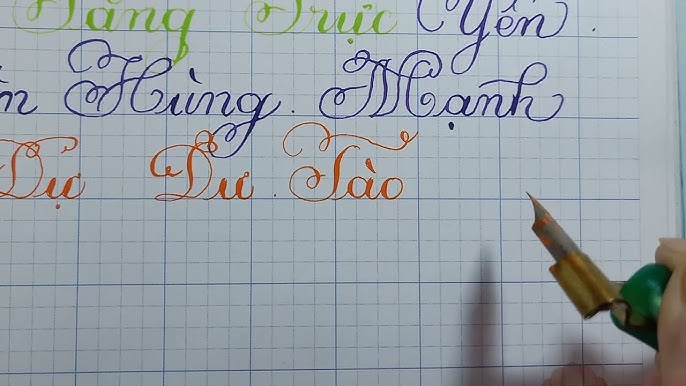 Trực Yến.
Hùng. Mạnh
Dự Dư. Tào